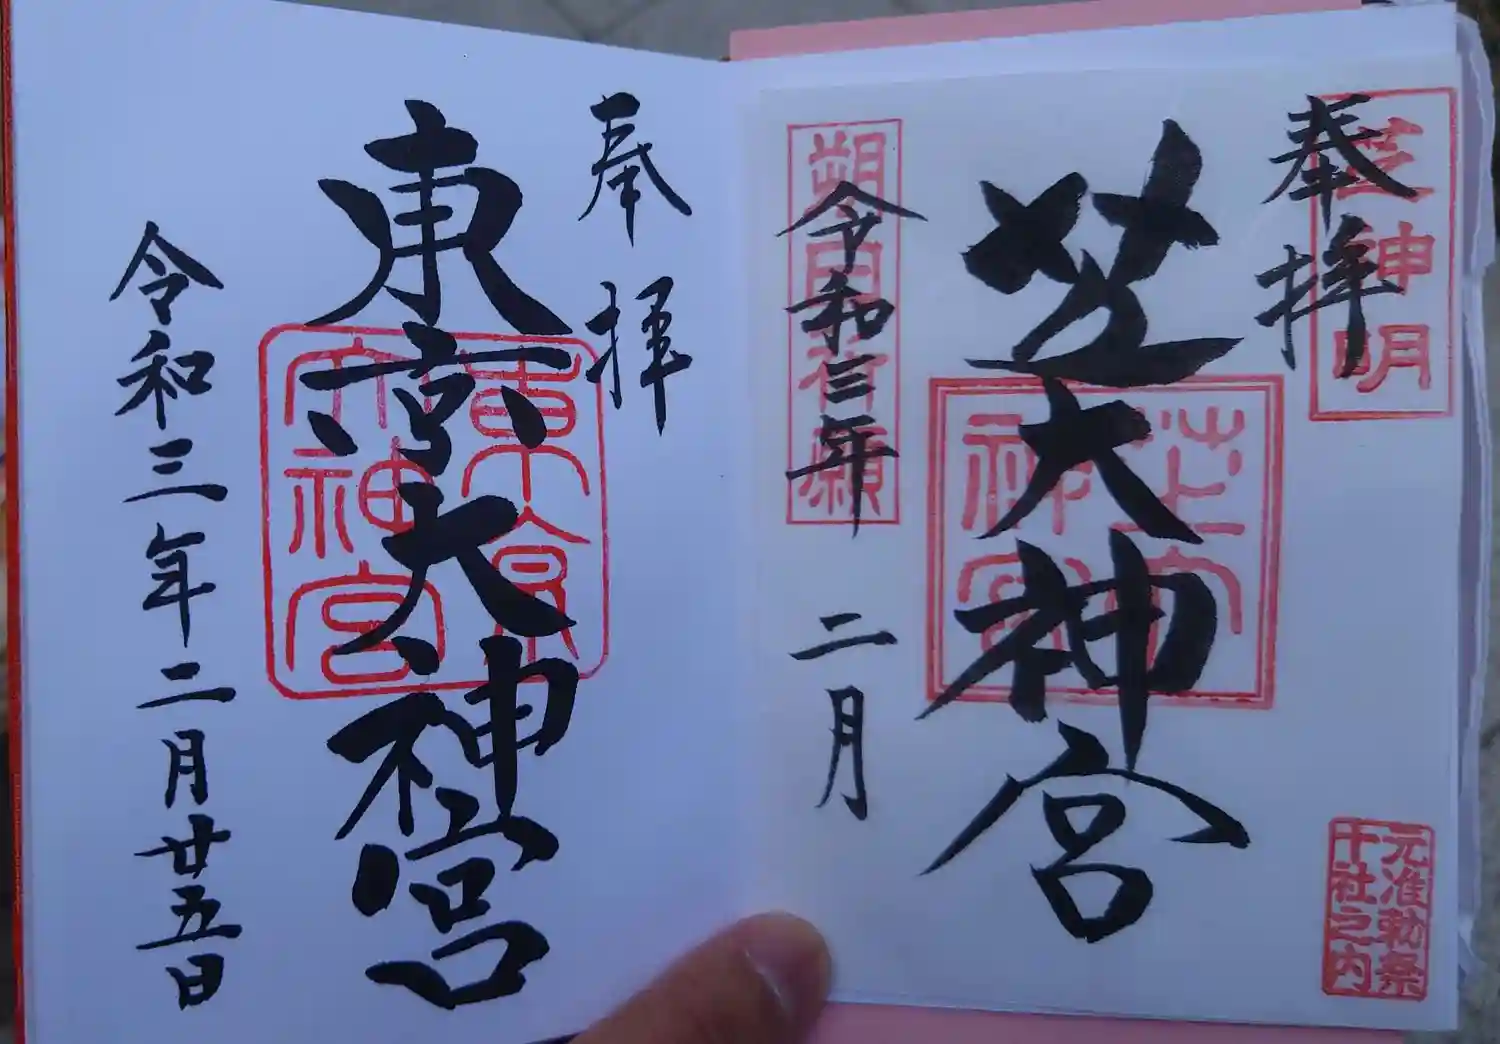 奉拝
芝神明
芝大神宮
芝大神宮
令和三年 二月
朔日者願
元准勅祭
十社之内
奉拝
東京大神宮
東京
大神宮
令和三年二月廿五日